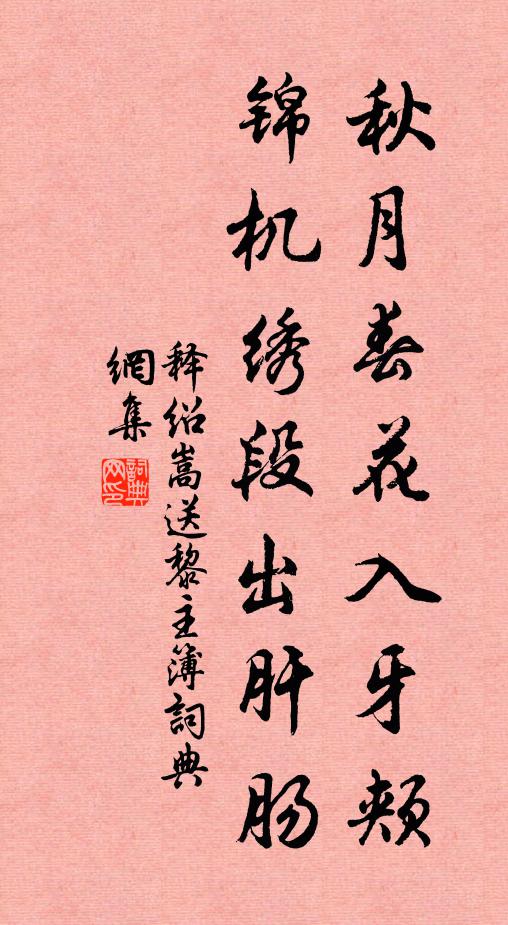 秋月春花入牙颊
锦机绣段出肝肠
释绍嵩送黎主簿詞典
網集
詞典网印